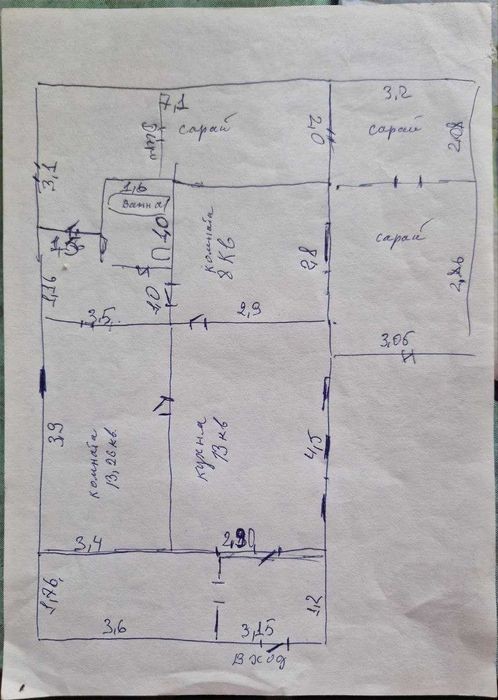 7,1
3,2
сарай
2,0
сарай
2,08
3,1
1,6
Ванна
1,0
комната
8 кв
2,8
сарай
2,86
1,16
1,0
3,5
2,9
3,05
3,9
комната
13,26 кв
кухня
13 кв
4,5
3,4
2,90
1,76
1,2
3,6
3,15
Вход